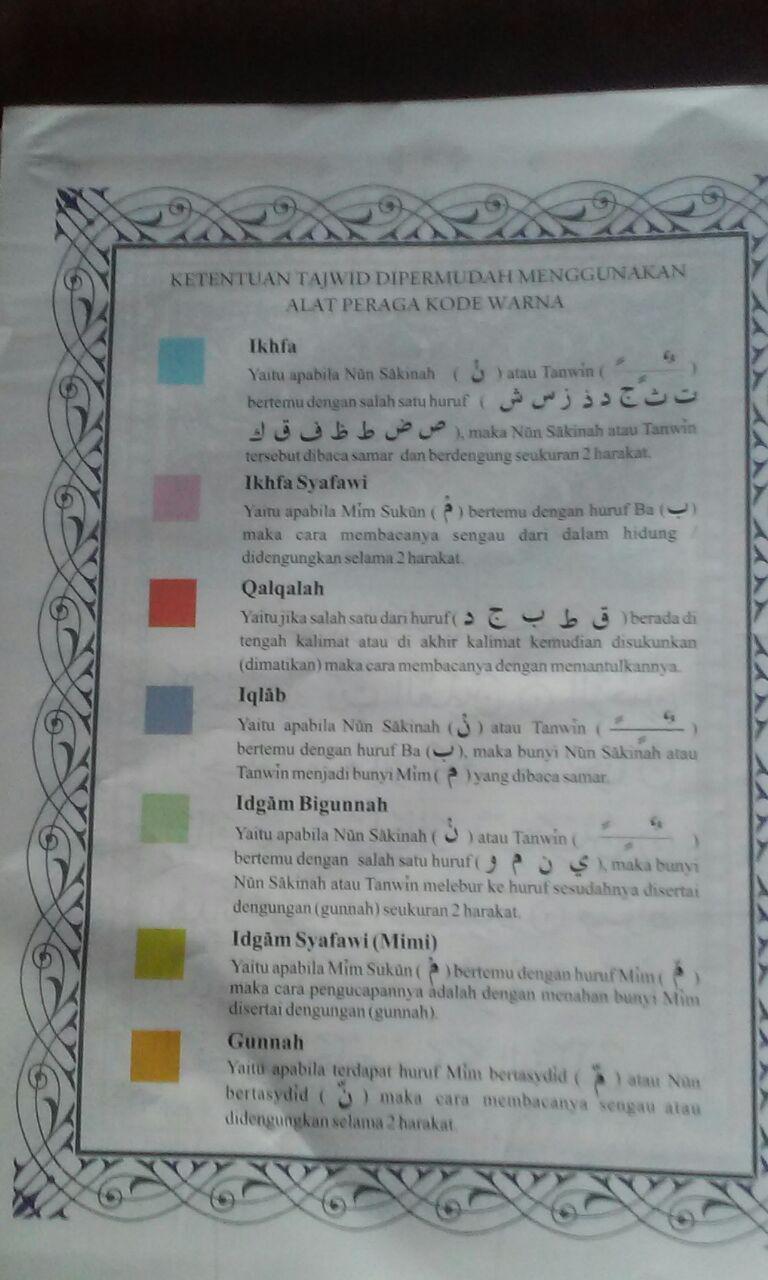 KETENTUAN TAJWID DIPERMUDAH MENGGUNAKAN
ALAT PERAGA KODE WARNA
Ikhfa
Yaitu apabila Nūn Sâkinah ( نْ ) atau Tanwin ( ـًـٍـٌ )
bertemu dengan salah satu huruf ( ت ث ج د ذ ز س ش
ص ض ط ظ ف ق ك ), maka Nūn Sâkinah atau Tanwin
tersebut dibaca samar dan berdengung seukuran 2 harakat.
Ikhfa Syafawi
Yaitu apabila Mim Sukūn ( مْ ) bertemu dengan huruf Ba (ب)
maka cara membacanya sengau dari dalam hidung /
didengungkan selama 2 harakat.
Qalqalah
Yaitu jika salah satu dari huruf ( ق ط ب ج د ) berada di
tengah kalimat atau di akhir kalimat kemudian disukunkan
(dimatikan) maka cara membacanya dengan memantulkannya.
Iqlāb
Yaitu apabila Nūn Sâkinah ( نْ ) atau Tanwin ( ـًـٍـٌ )
bertemu dengan huruf Ba (ب), maka bunyi Nūn Sâkinah atau
Tanwin menjadi bunyi Mim ( م ) yang dibaca samar.
Idgām Bigunnah
Yaitu apabila Nūn Sâkinah ( نْ ) atau Tanwin ( ـًـٍـٌ )
bertemu dengan salah satu huruf ( ي ن م و ), maka bunyi
Nūn Sâkinah atau Tanwin melebur ke huruf sesudahnya disertai
dengungan (gunnah) seukuran 2 harakat.
Idgām Syafawi (Mimi)
Yaitu apabila Mim Sukūn ( مْ ) bertemu dengan huruf Mim ( مّ )
maka cara pengucapannya adalah dengan menahan bunyi Mim
disertai dengungan (gunnah).
Gunnah
Yaitu apabila terdapat huruf Mim bertasydid ( مّ ) atau Nūn
bertasydid ( نّ ) maka cara membacanya sengau atau
didengungkan selama 2 harakat.